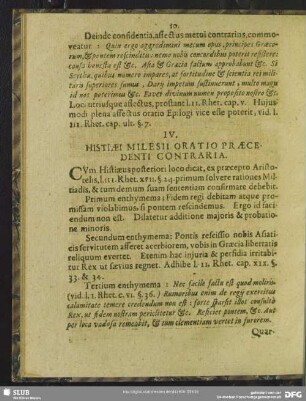 10.
Deinde confidentia, affectus metui contrarius, commo-
veatur: Quin ergo aggredimini metum opus, principes Græco-
rum, & pontem rescinditis: nemo nobis concordibus poterit resistere:
consa honesta est &c. Asia & Græcia factum approbabunt &c. Si
Scythæ, quibus numero impares, at fortitudine & scientia rei mili-
taris superiores sumus, Darij impetum sustinuerunt, multo magis
id nos poterimus &c. Favet divinum numen proposito nostro &c.
Locus utriusque affectus, prostant l. 11. Rhet. cap. v. Hujus-
modi plena affectus oratio Epilogi vice esse poterit, vid. l.
III. Rhet. cap. ult. §. 7.
IV.
HISTIÆI MILESII ORATIO PRÆCE-
DENTI CONTRARIA.
CVm Histiæus posteriori loco dicat, ex præcepto Aristo-
telis, l. III. Rhet. XVII. §. 24. primum solvere rationes Mil-
tiadis, & tum demum suam sententiam confirmare debebit.
Primum enthymema: Fidem regi debitam atque pro-
missam violabimus, si pontem rescindemus. Ergo id faci-
endum non est. Dilatetur additione majoris & probatio-
ne minoris.
Secundum enthymema: Pontis rescissio nobis Asiati-
cis servitutem afferet acerbiorem, vobis in Græcia libertatis
reliquum evertet. Etenim hac injuria & perfidia irritabi-
tur Rex ut sævius regnet. Adhibe l. 11. Rhet. cap. XIX. §.
33. & 34.
Tertium enthymema: Nec facile factu est quod moliris
(vid. l. 1. Rhet. c. VI. §. 36.) Rumoribus enim de regij exercitus
calamitate temere credendum non est: forte spursit istos consultò
Rex, ut fidem nostram periclitetur &c. Reficiet pontem, &c. Aut
per loca vadosa remeabit, & tum clementiam vertet in furorem.
Quar-